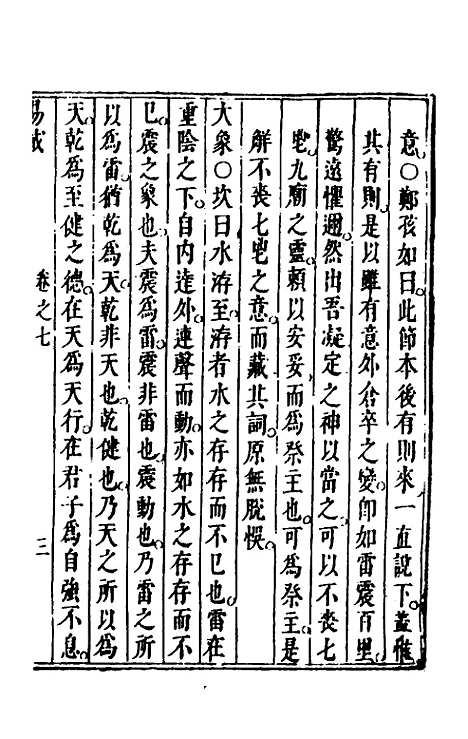 意○鄭孩如曰此節本後有則來一直說下。葢惟
其有則。是以雖有意外倉卒之變。卽如雷震百里。
驚遠懼邇。然出吾凝定之神以當之。可以不喪七
鬯。九廟之靈。賴以安妥。而爲祭主也。可爲祭主。是
解不喪七鬯之意。而藏其詞。原無脫悞。
大象○坎曰水洊至。洊者水之存存而不已也。雷在
重陰之下。自內達外。連聲而動。亦如水之存存而不
已。震之象也。夫震爲雷。震非雷也。震動也。乃雷之所
以爲雷。猶乾爲天。乾非天也。乾健也。乃天之所以爲
天。乾爲至健之德。在天爲天行。在君子爲自強不息。
卷之七
三